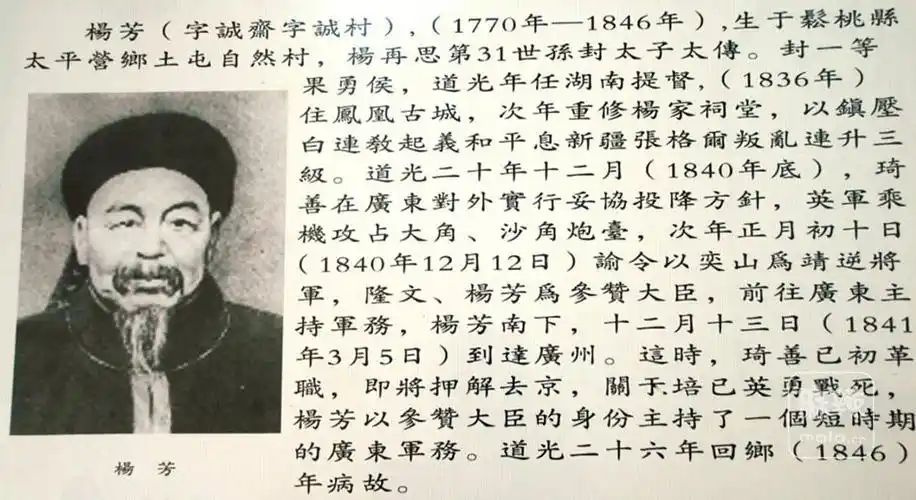 楊芳（字誠齋字誠村），（1770年—1846年），生于鬆桃縣
太平營鄉土屯自然村，楊再思第31世孫封太子太傳。封一等
果勇侯，道光年任湖南提督，（1836年）
住鳳凰古城，次年重修楊家祠堂，以鎮壓
白連教起義和平息新疆張格爾叛亂連升三
級。道光二十年十二月（1840年底），琦
善在廣東對外實行妥協投降方針，英軍乘
機攻占大角、沙角炮臺，次年正月初十日
（1840年12月12日）諭令以奕山爲靖逆將
軍，隆文、楊芳爲參贊大臣，前往廣東主
持軍務，楊芳南下，十二月十三日（1841
年3月5日）到達廣州。這時，琦善已初革
職，即將押解去京，關于培已英勇戰死，
楊芳以參贊大臣的身份主持了一個短時期
的廣東軍務。道光二十六年回鄉（1846）
年病故。
楊芳